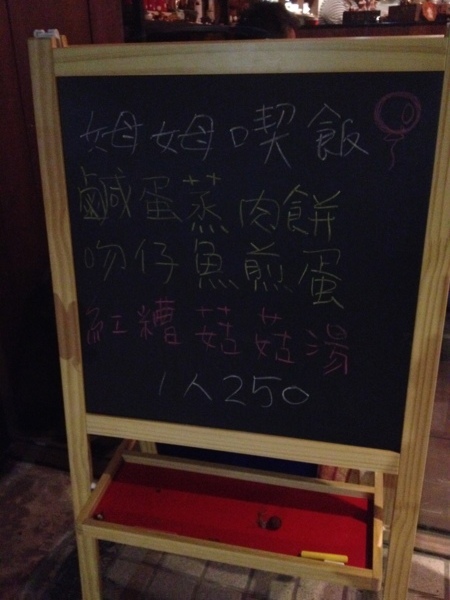 姆姆喫飯
鹹蛋蒸肉餅
吻仔魚煎蛋
紅糟菇菇湯
1人250